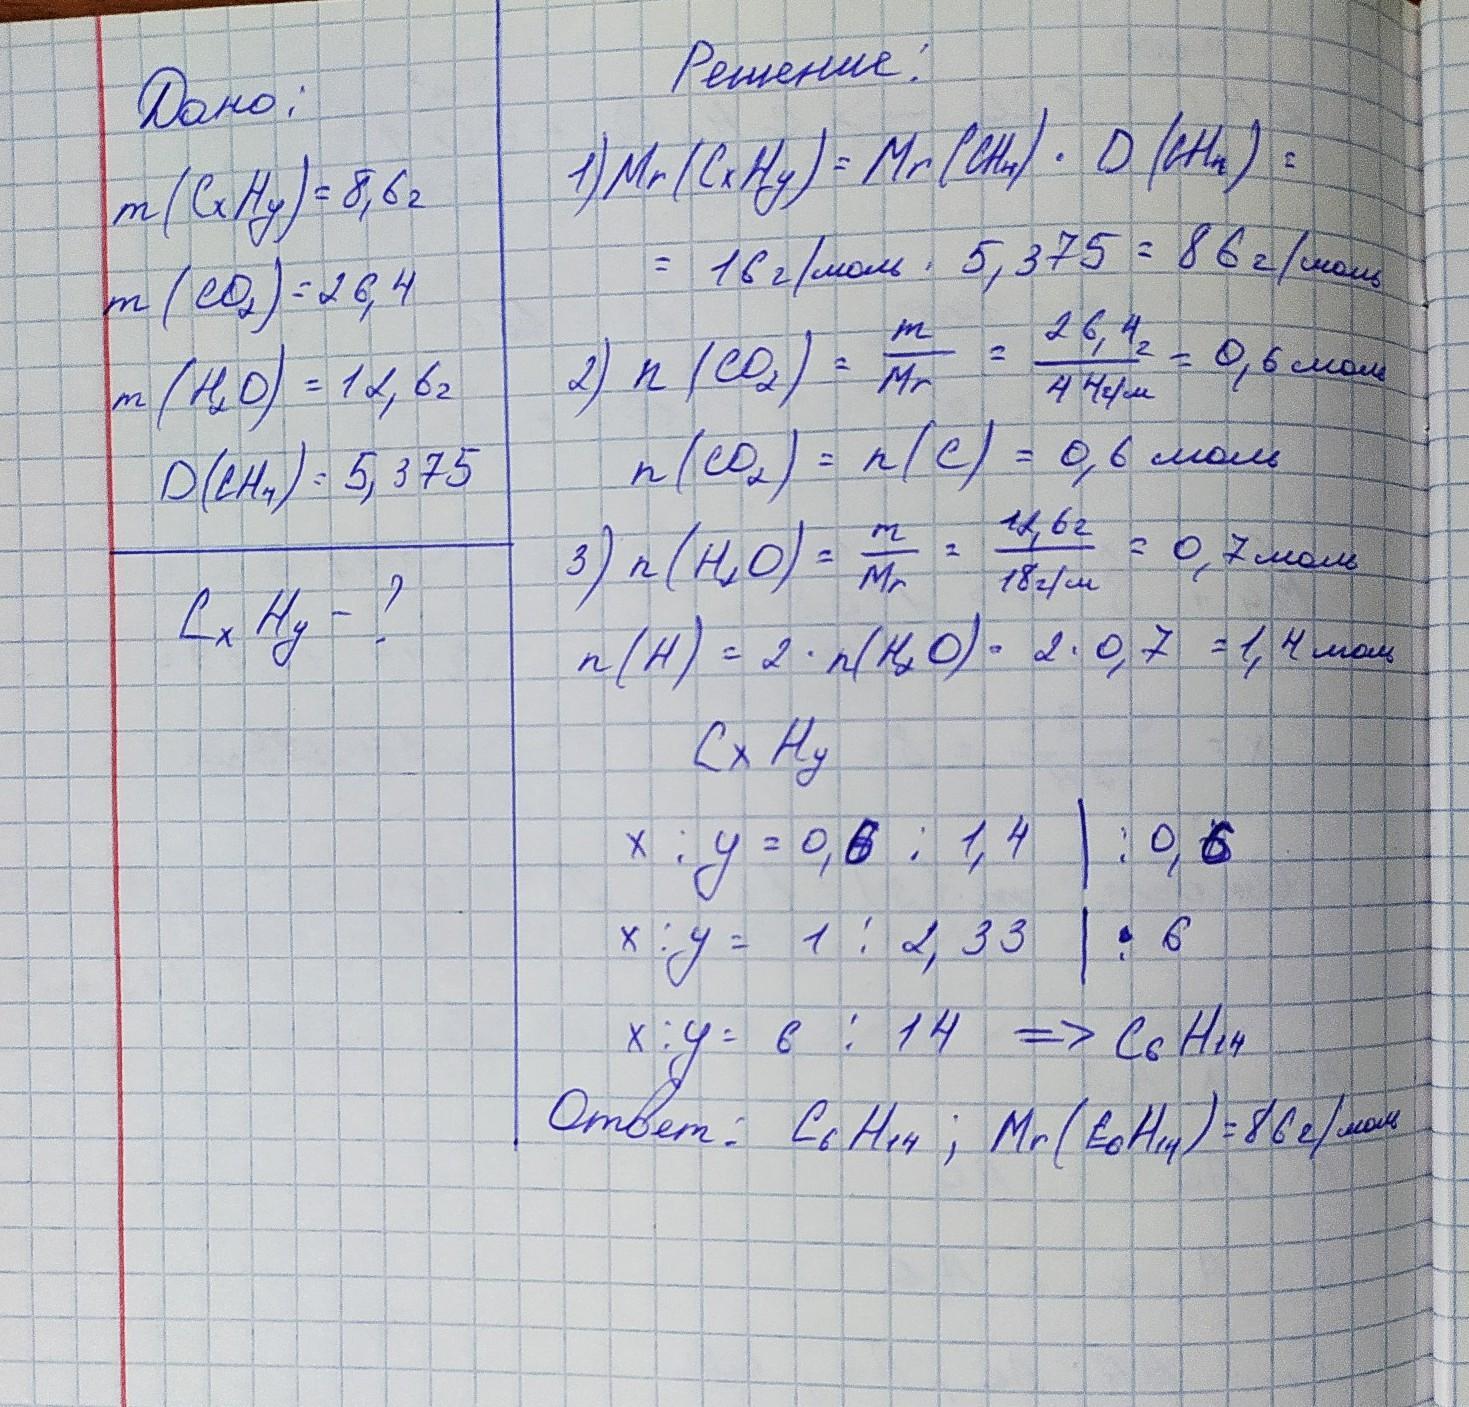 Дано:
m(CxHy)=8,6г
m(CO₂)=26,4
m(H₂O)=12,6г
D(CH₄)=5,375
CxHy - ?
Решение:
1) Mr(CxHy)=Mr(CH₄)·D(CH₄)=
= 16г/моль · 5,375 = 86г/моль
2) n(CO₂) = m/Mr = 26,4г/44г/м = 0,6 моль
n(CO₂) = n(C) = 0,6 моль
3) n(H₂O) = m/Mr = 12,6г/18г/м = 0,7 моль
n(H) = 2·n(H₂O) = 2·0,7 = 1,4 моль
CxHy
x : y = 0,6 : 1,4 | : 0,6
x : y = 1 : 2,33 | : 6
x : y = 6 : 14 => C₆H₁₄
Ответ: C₆H₁₄ ; Mr(C₆H₁₄)=86г/моль